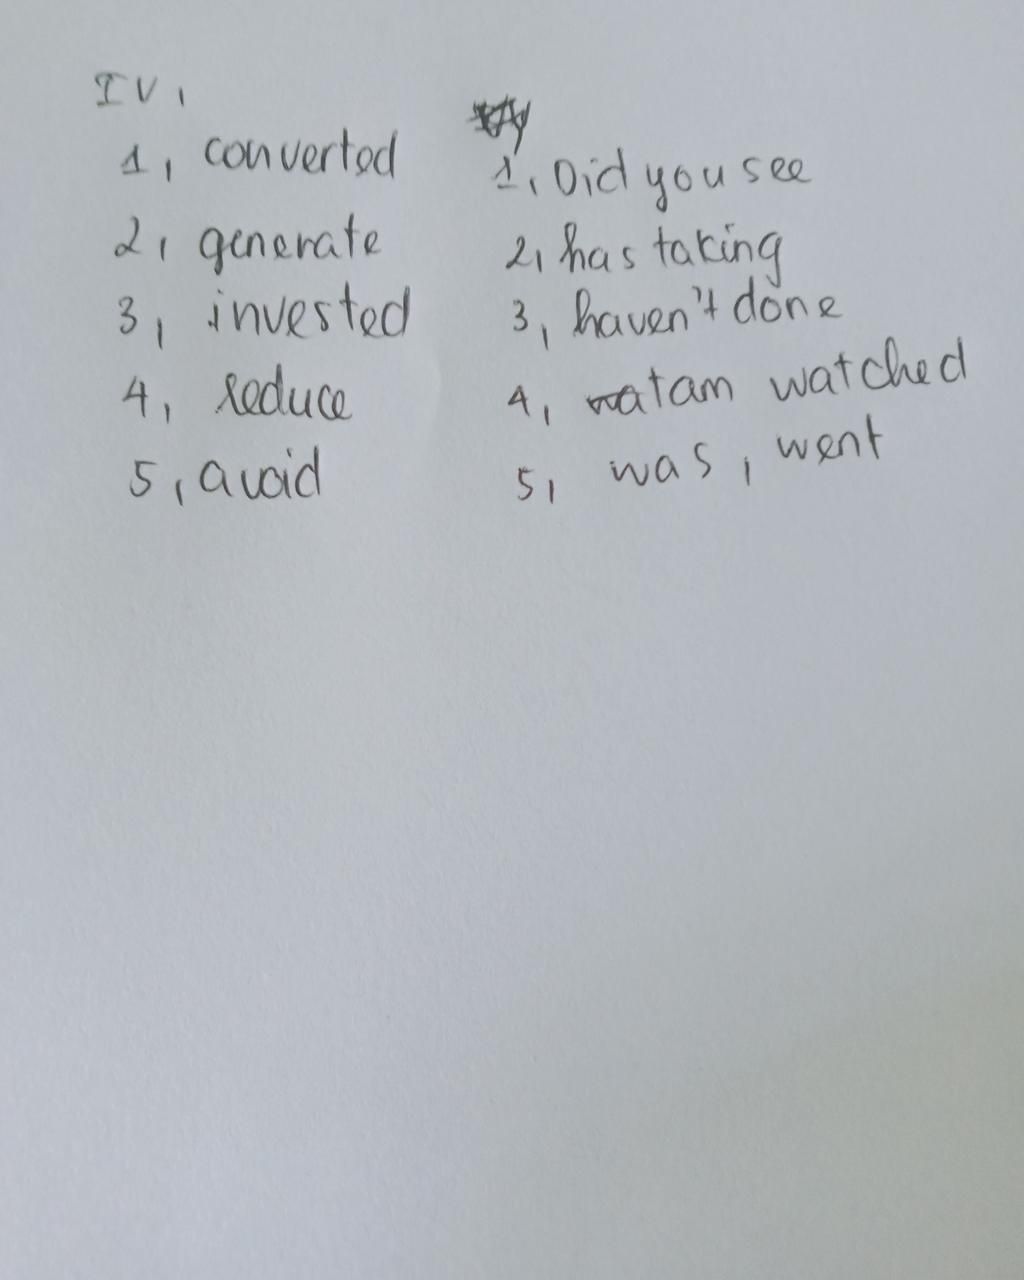 IV,
1, converted
2, generate
3, invested
4, reduce
5, avoid
1, Did you see
2, has taking
3, haven't done
4, am watched
5, was, went